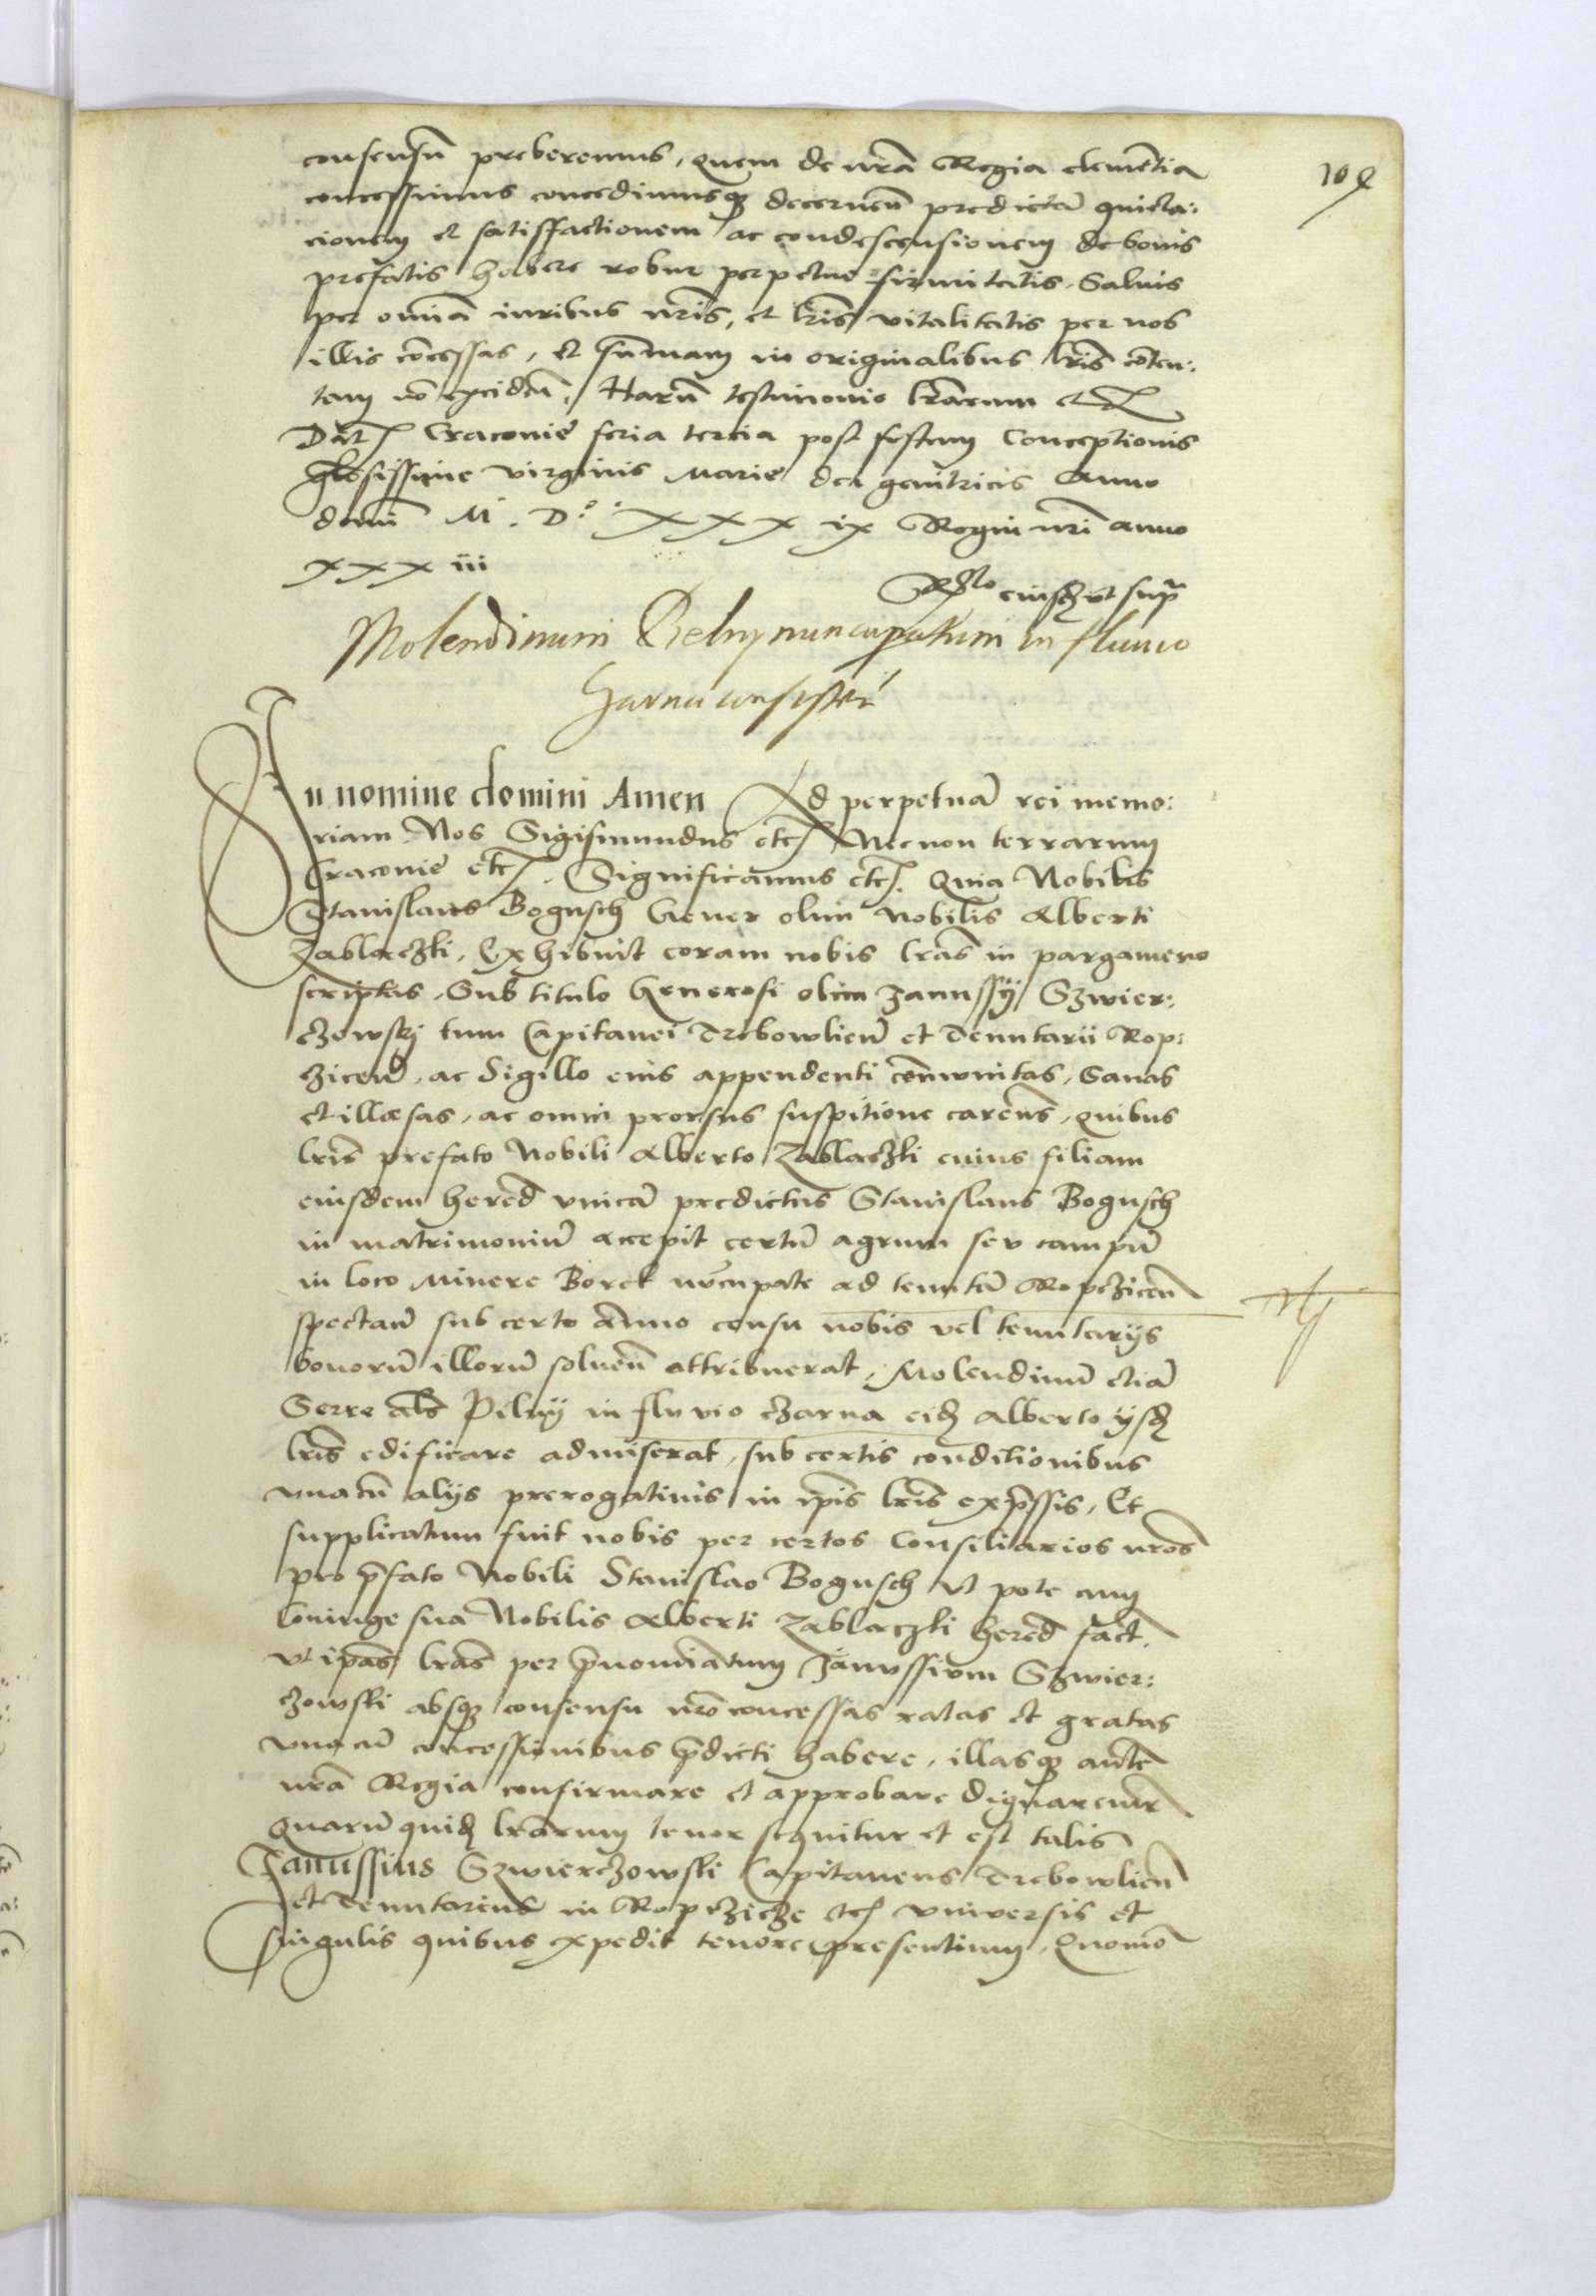 consensũ preberemus, quem de nr̃a Regia clemẽtia
concessimus concedimusq; decernen̄ predictã quicta:
cionem et satisfactionem ac condescensionem de bonis
prefatis habere robur perpetue firmitatis. Salvis
per om̃ia iuribus nr̃is, et lr̃is vitalitatis per nos
illis cõcessas, et sum̃am in originalibus lr̃is cõten:
tam nõ exceden̄. Harũ testimonio lr̃arum etc
Dat̃ Cracovie feria tercia post festum Conceptionis
glo͠sissime virginis Marie dei genitricis Anno
domini M. D.° XXX ix Regni nr̃i anno
XXX iii
R̃elo eiusd̃ ut supr̃
Molendinum Pelny nuncupatum in fluvio
Czarna consisten̄
In nomine domini Amen Ad perpetuã rei memo:
riam Nos Sigismundus etc̃ Necnon terrarum
Cracovie etc̃. Significamus etc̃. Quia Nobilis
Stanislaus Bogusch Gener olim Nobilis Alberti
Zablaczki, Exhibuit coram nobis lr̃as in pargameno
scriptas, Sub titulo Generosi olim Janussy Szwier:
czowskj tum Capitanei Trebowlien̄ et Tenutarii Rop:
cziceñ, ac Sigillo eius appendenti com̃unitas, Sanas
et illæsas, ac omni prorsus suspitione careñs, quibus
lr̃is prefato Nobili Alberto Zablaczki cuius filiam
eiusdem hered̃ vnicã predictus Stanislaus Bogusch
in matrimoniũ accepit certũ agrum seu campũ
in loco Minere Borek nũcupate ad tenutã Ropcziceñ
spectañ sub certo Annuo censu nobis vel tenutarijs
bonorũ illorũ solueñ attribuerat, Molendinũ etiã
Serre al̃s Pilny in fluvio czarna eid̃ Alberto ijsd̃
lr̃is edificare admiserat, sub certis conditionibus
vnacũ alijs prerogativis in ip̃is lr̃is exp̃ssis, Et
supplicatum fuit nobis per certos Consiliarios nr̃os
pro p̃fato Nobili Stanislao Bogusch vt pote cum
Coniuge sua Nobilis Alberti Zablaczki hered̃ fact̃
vt ip̃as lr̃as per p̃nominatum Janussium Szwier:
czowski absq; consensu nr̃o concessas ratas et gratas
vnacũ concessionibus p̃dicti habere, illasq; aut̃e
nr̃a Regia confirmare et approbare dignaremur
Quarũ quid̃ lr̃arum tenor sequitur et est talis
Janussius Szwierczowski Capitaneus Trebowlieñ
et Tenutarius in Ropczicze etc̃ vniversis et
singulis quibus expedit tenore presentium, Quomõ